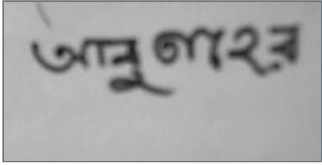 আবু তাহের